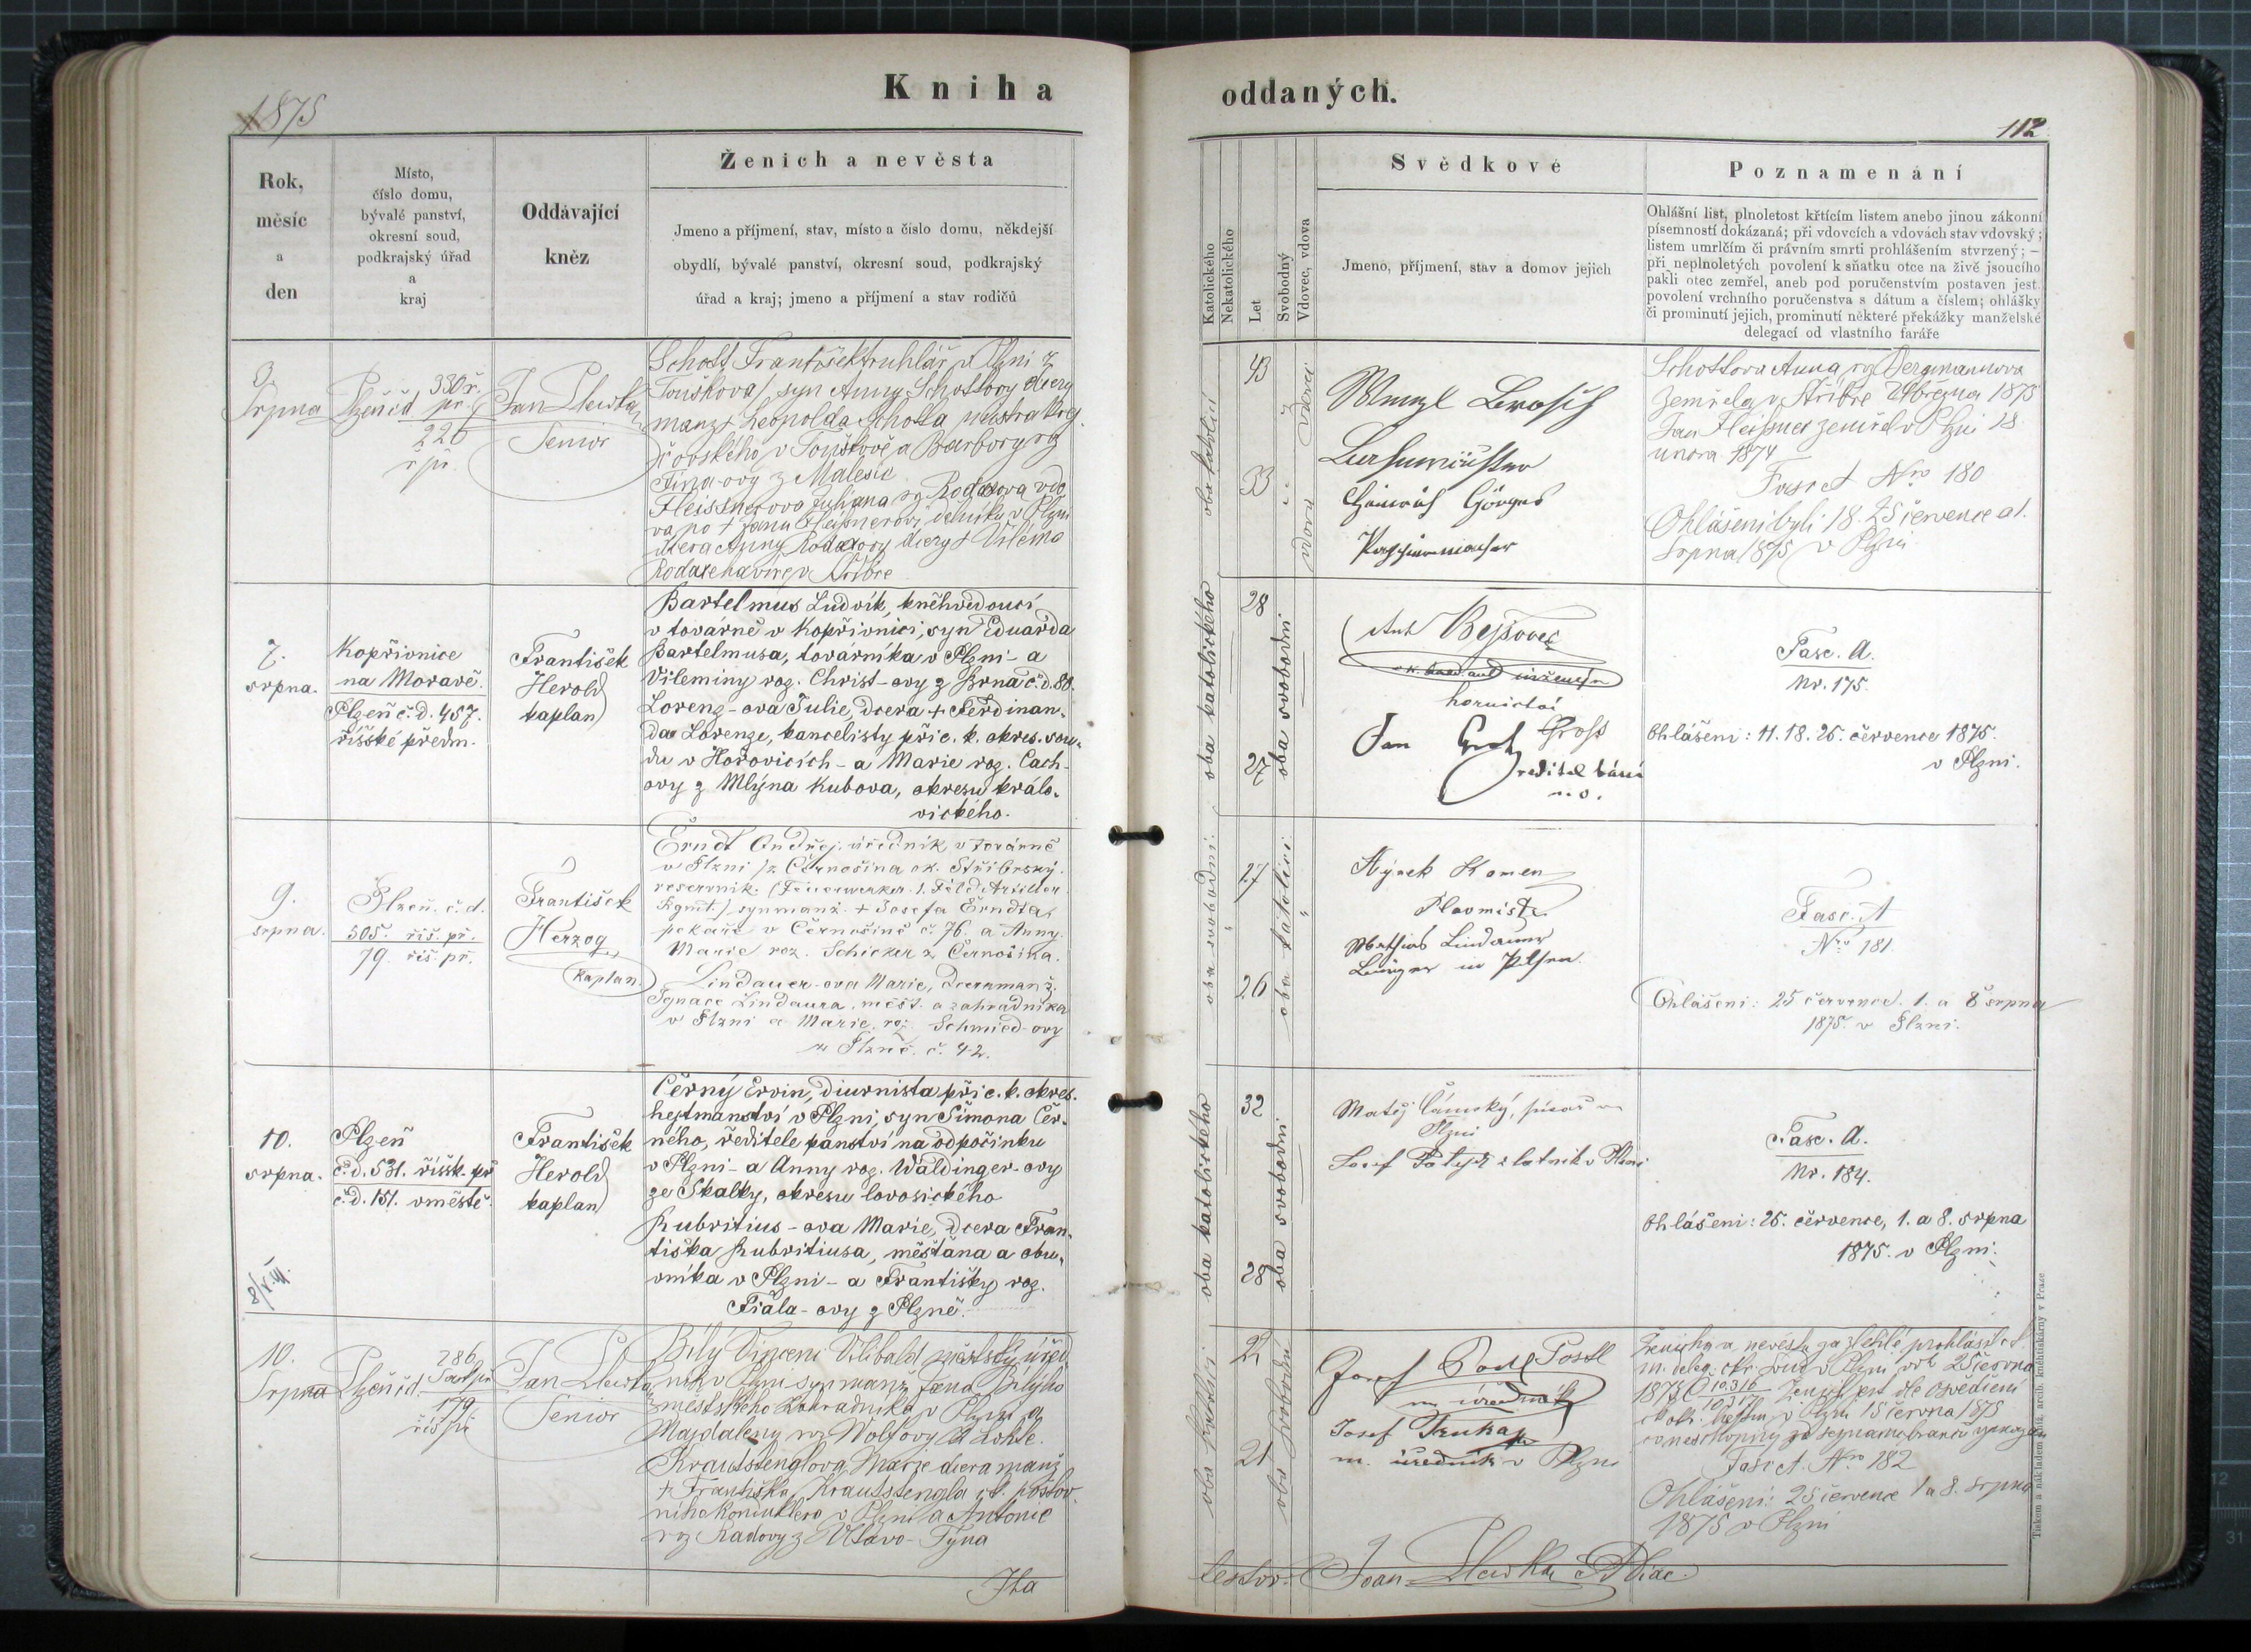 Kniha
oddaných.
1875
112
Rok,
měsíc
a
den
Místo,
číslo domu,
bývalé panství,
okresní soud,
podkrajský úřad
a
kraj
Oddávající
kněz
Ženich a nevěsta
Jmeno a příjmení, stav, místo a číslo domu, někdejší
obydlí, bývalé panství, okresní soud, podkrajský
úřad a kraj; jmeno a příjmení a stav rodičů
Katolického
Nekatolického
Let
Svobodný
Vdovec, vdova
Svědkové
Jmeno, příjmení, stav a domov jejich
Poznamenání
Ohlášní list, plnoletost křtícím listem anebo jinou zákonní
písemností dokázaná; při vdovcích a vdovách stav vdovský;
listem umrlčím či právním smrti prohlášením stvrzený; —
při neplnoletých povolení k sňatku otce na živě jsoucího
pakli otec zemřel, aneb pod poručenstvím postaven jest
povolení vrchního poručenstva s dátum a číslem; ohlášky
či prominutí jejich, prominutí některé překážky manželské
delegací od vlastního faráře
3
Srpna
Plzeň čd 330 ř.
př.
226
ř př.
Jan Slewka
Senior
Schott František truhlář v Plzni z
Touškova syn Anny Schottovy dcery
manž + Leopolda Schotta mistra
v Touškově a Barbory rz
z Malesic
Fleissnerova Juliana rz Rodaxova vdo
va po + Janu Fleissnerovi dělníku v Plzni
dcera Anny Rodaxovy dcery + Viléma
Rodaxe havíře v Stříbře
oba katolíci
43
33
vdovec
vdova
Wenzl Brosch
Heinrich Görges
Schottova Anna rz Bergmannova
zemřela v Stříbře března 1875
Jan Fleissner zemřel v Plzni 18
února 1874
Fasc A Nro 180
Ohlášeni byli 18. 25 července a 1.
Srpna 1875 v Plzni
7.
srpna.
Kopřivnice
na Moravě.
Plzeň č. d. 457.
říšské předm.
František
Herold
kaplan
Bartelmus Ludvík, kněhvedoucí
v továrně v Kopřivnici, syn Eduarda
Bartelmusa, továrníka v Plzni – a
Vileminy roz. Christ-ovy z Brna č. d. 80.
Lorenz-ova Julie, dcera + Ferdinan-
da Lorenze, kancelisty při c. k. okres. sou-
du v Hořovicích – a Marie roz. Cach-
ovy z Mlýna Kubova, okresu králo-
vického.
oba katolického
28
27
oba svobodni
Ant Bejšovec
hornictví
Jan Gross
ředitel
Fasc. A.
Nr. 175.
Ohlášeni: 11. 18. 25. července 1875.
v Plzni.
9.
srpna.
Plzeň. č. d.
505. říš. př.
79. říš. př.
František
Herzog
kaplan.
Erndt Ondřej, úředník v továrně
v Plzni /z Černošína ok. Stříbrský.
reservník (Feuerwerker 1. Feld Artiller.
Rgmt.) syn manž. + Josefa Erndta,
pekaře v Černošíně č. 76. a Anny
Marie roz. Schicker z Černošína.
Lindauer-ova Marie, dcera manž.
Ignace Lindaura, měšť. a zahradníka
v Plzni a Marie, roz. Schmied-ovy
z Plzně. č. 42.
oba svobodni.
27
26
oba katolíci
Hynek Kamen
Mathias Lindauer
Bürger in Pilsen.
Fasc. A
Nro 181.
Ohlášeni: 25 července. 1. a 8 srpna
1875. v Plzni.
10.
srpna.
Plzeň
č. d. 531. říšsk. př
č. d. 151. v městě.
František
Herold
kaplan
Černý Ervin, diurnista při c. k. okres.
hejtmanství v Plzni, syn Šimona Čer-
ného, ředitele panství na odpočinku
v Plzni – a Anny roz. Waldinger-ovy
ze Skalky, okresu lovosického
Kubritius-ova Marie, dcera Fran-
tiška Kubritiusa, měšťana a obu-
vníka v Plzni – a Františky roz.
Fiala-ovy z Plzně.
oba katolického
32
28
oba svobodni
Matěj Čámský, písař v
Plzni
Josef zlatník v Plzni
Fasc. A.
Nr. 184.
Ohlášeni: 25. července, 1. a 8. srpna
1875. v Plzni.
10.
Srpna
Plzeň čd. 286
179
říš př
Jan Slewka
Senior
Bílý Vincenc Vilibald městský úřed
ník v Plzni syn manž Jana Bílýho
městského zahradníka v Plzni a
Majdaleny rz Wolfovy z Lokte.
Krautstenglova Marie dcera manž
+ Františka Krautstengla c. k. poštov-
ního konduktéra v Plzni a Antonie
rz Kadovy z Vltavo-Týna
oba katolíci
21
21
oba svobodni
Josef Postl
m. úředník
Josef Trnka
m. úředník v Plzni
Ženicha a nevěstu za zletilé prohlásil c. k.
m. deleg. okr. soud v Plzni 25 června
1875 Č 10.316
10.317
v Plzni 15 června 1875
Fasc A. Nro 182
Ohlášeni: 25 července 1 a 8. srpna
1875 v Plzni
Ita
testor
Joan Slewka
Tiskem a nákladem knížt. arcib. kněhtiskárny v Praze